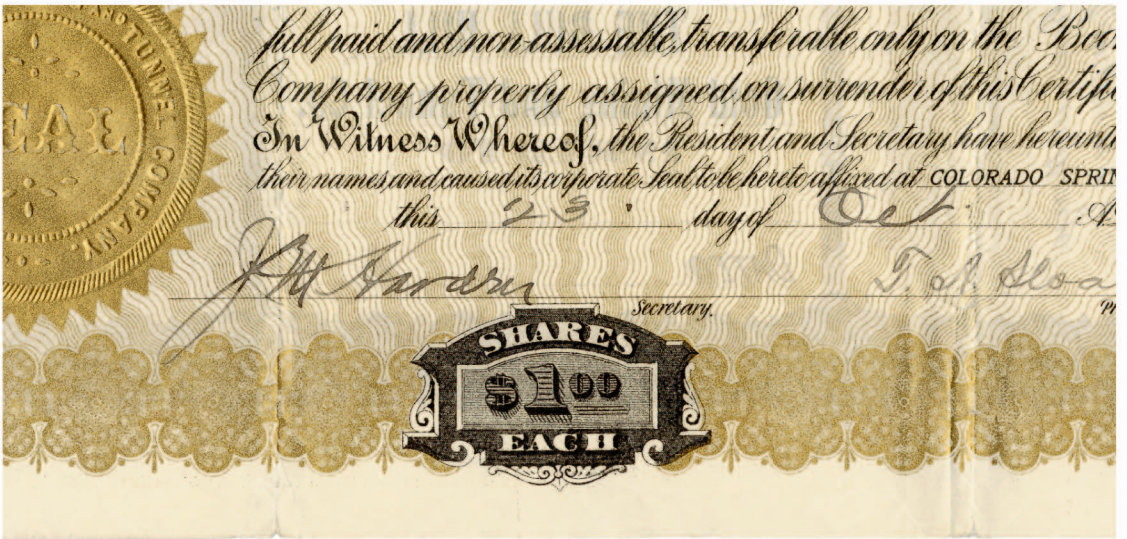 TUNNEL COMPANY.
EAL
full paid and non-assessable, transferable only on the Boo
Company properly assigned, on surrender of this Certifi
In Witness Whereof, the President and Secretary have hereunt
their names and caused its corporate Seal to be hereto affixed at COLORADO SPRIN
this 23 day of Oct. A.
T. A. Sloa
Secretary.
SHARES
$1.00
EACH